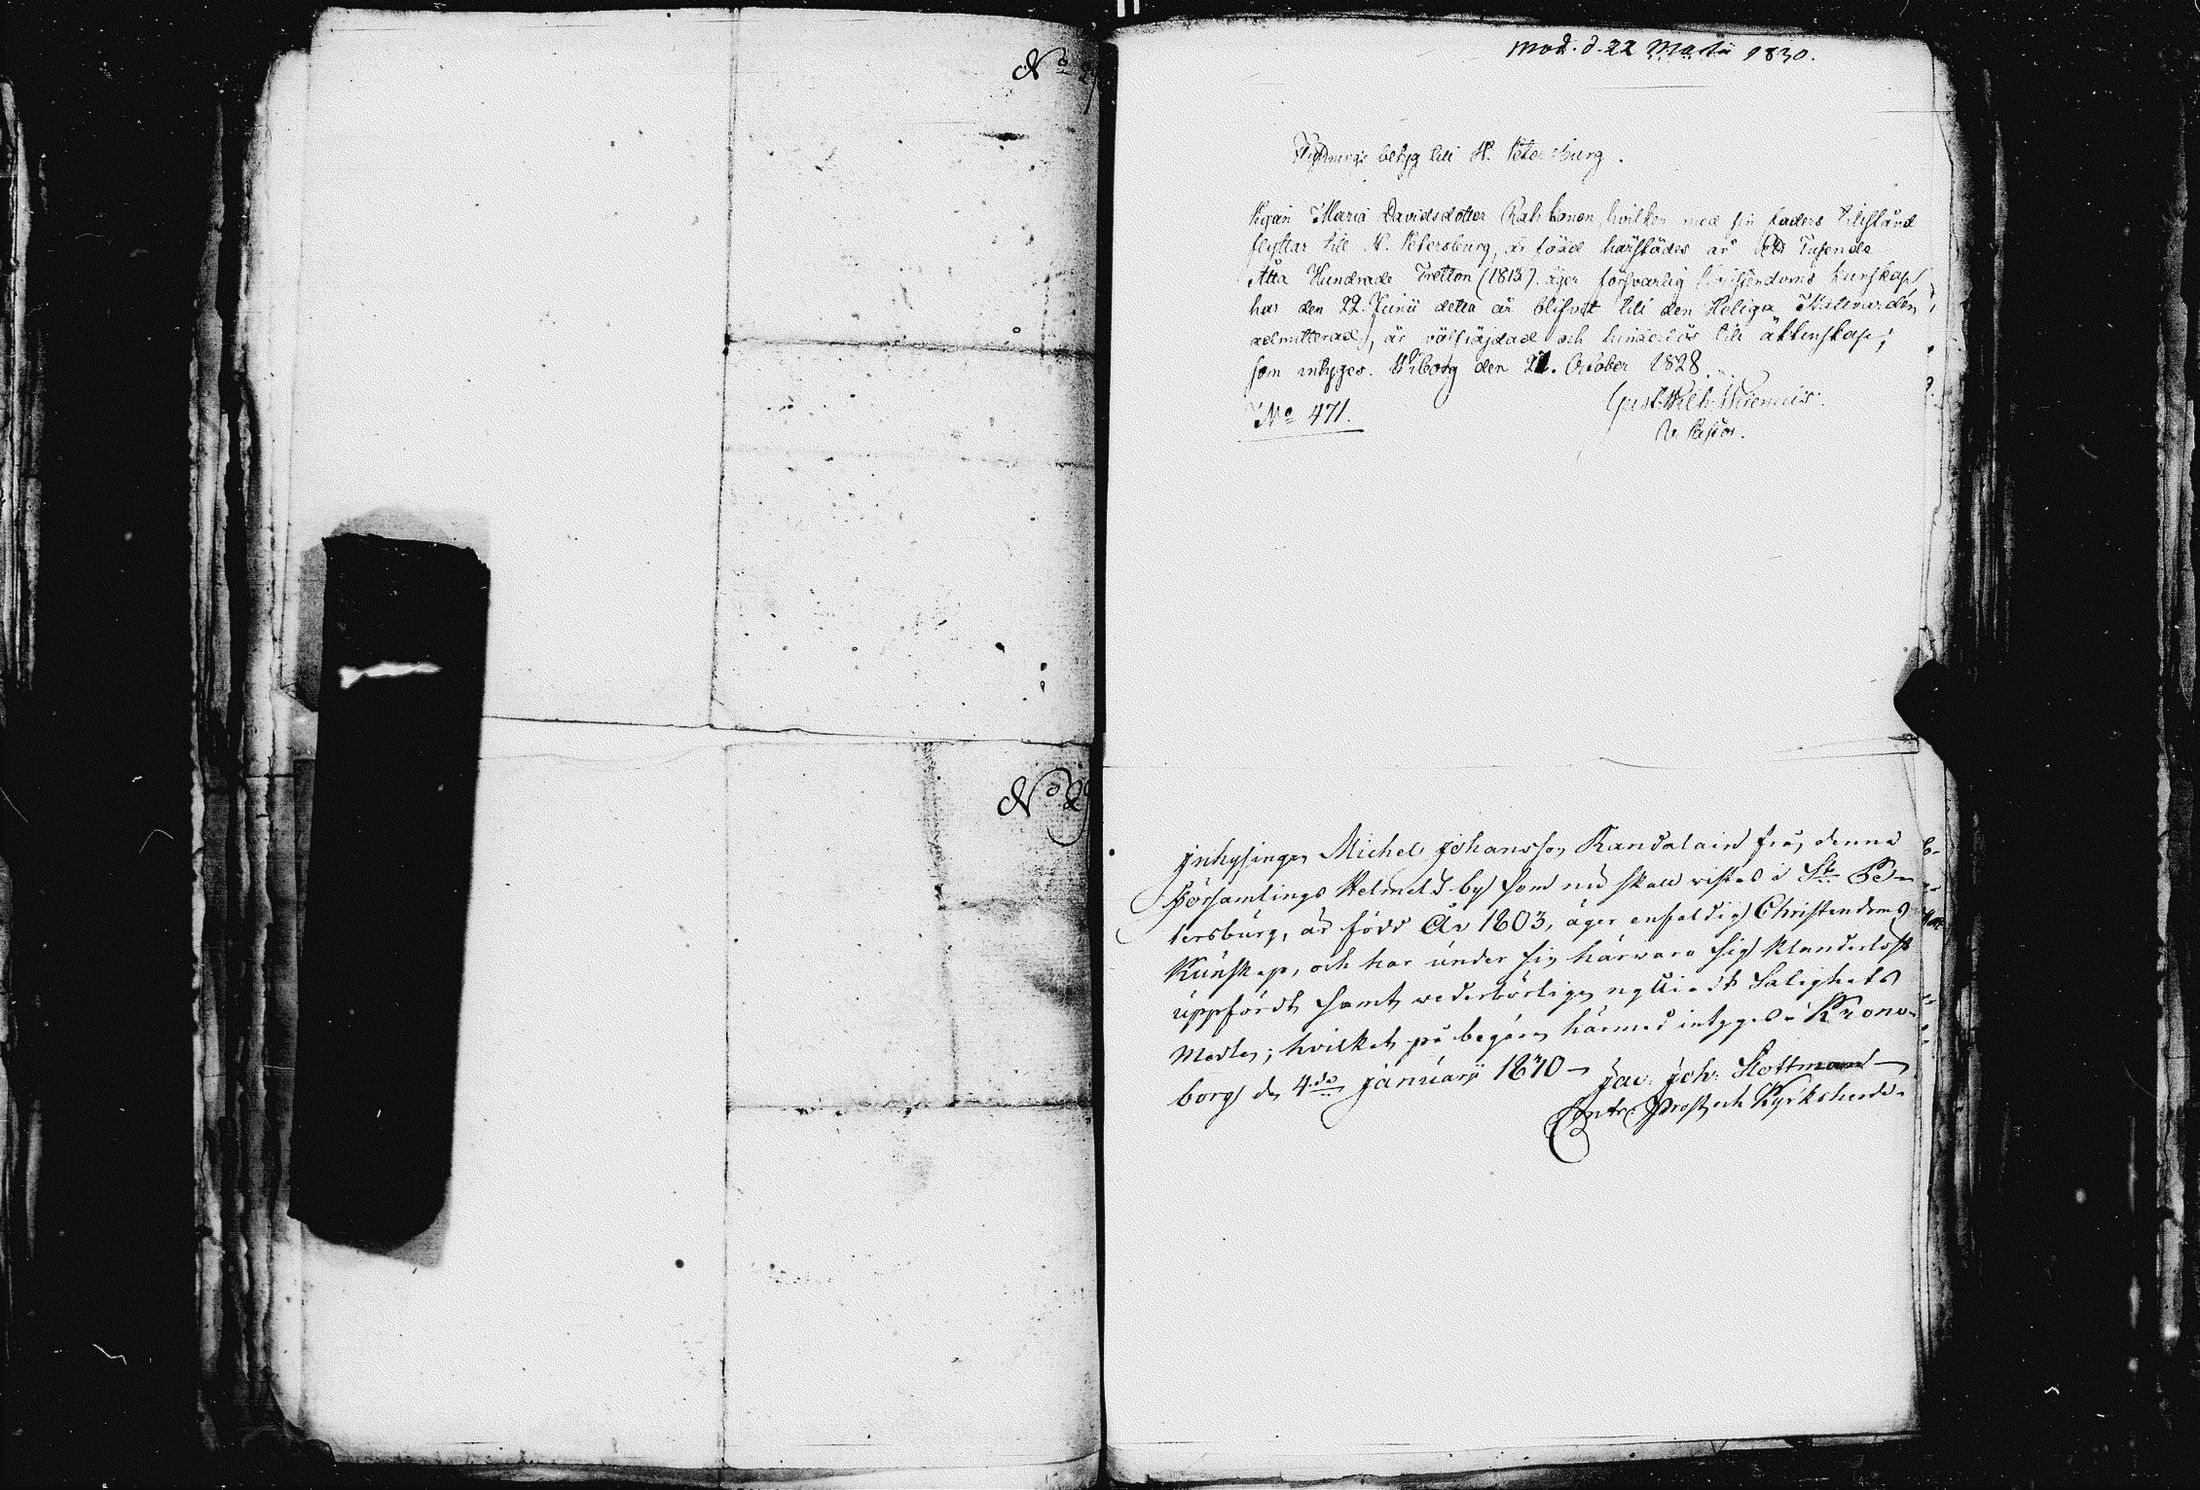 No
No
mod. d. 22 Martii 1830.
Flyttnings betyg till St. Petersburg.
Pigan Maria Davidsdotter hvilken med sin faders tillstånd
flyttar till St. Petersburg, är född härstädes år Ett Tusende
Åtta Hundrade Tretton (1813), äger försvarlig Christendoms kunskap,
har den 22. Junii detta år blifvit till den Heliga Nattvarden
admitterad, är välfräjdad och hinderlös till äktenskap;
som intyges. Wiborg den 21. October 1828.
No 471.
Gust. Wilh.
V. Pastor.
Inhysingen Michel Johansson Kandalain från denna
Församlings by som nu skall vistas i St. Pe-
tersburg, är född År 1803, äger enfaldig Christendoms
Kunskap, och har under sin härvaro sig klanderlöst
uppfördt samt vederbörligen nyttjadt Salighets
Medlen; hvilket på begäran härmed intygas. Krono-
borg den 4.de Januarii 1830
Jac: Joh: Slottman
Contr: Prost och Kyrkoherde.